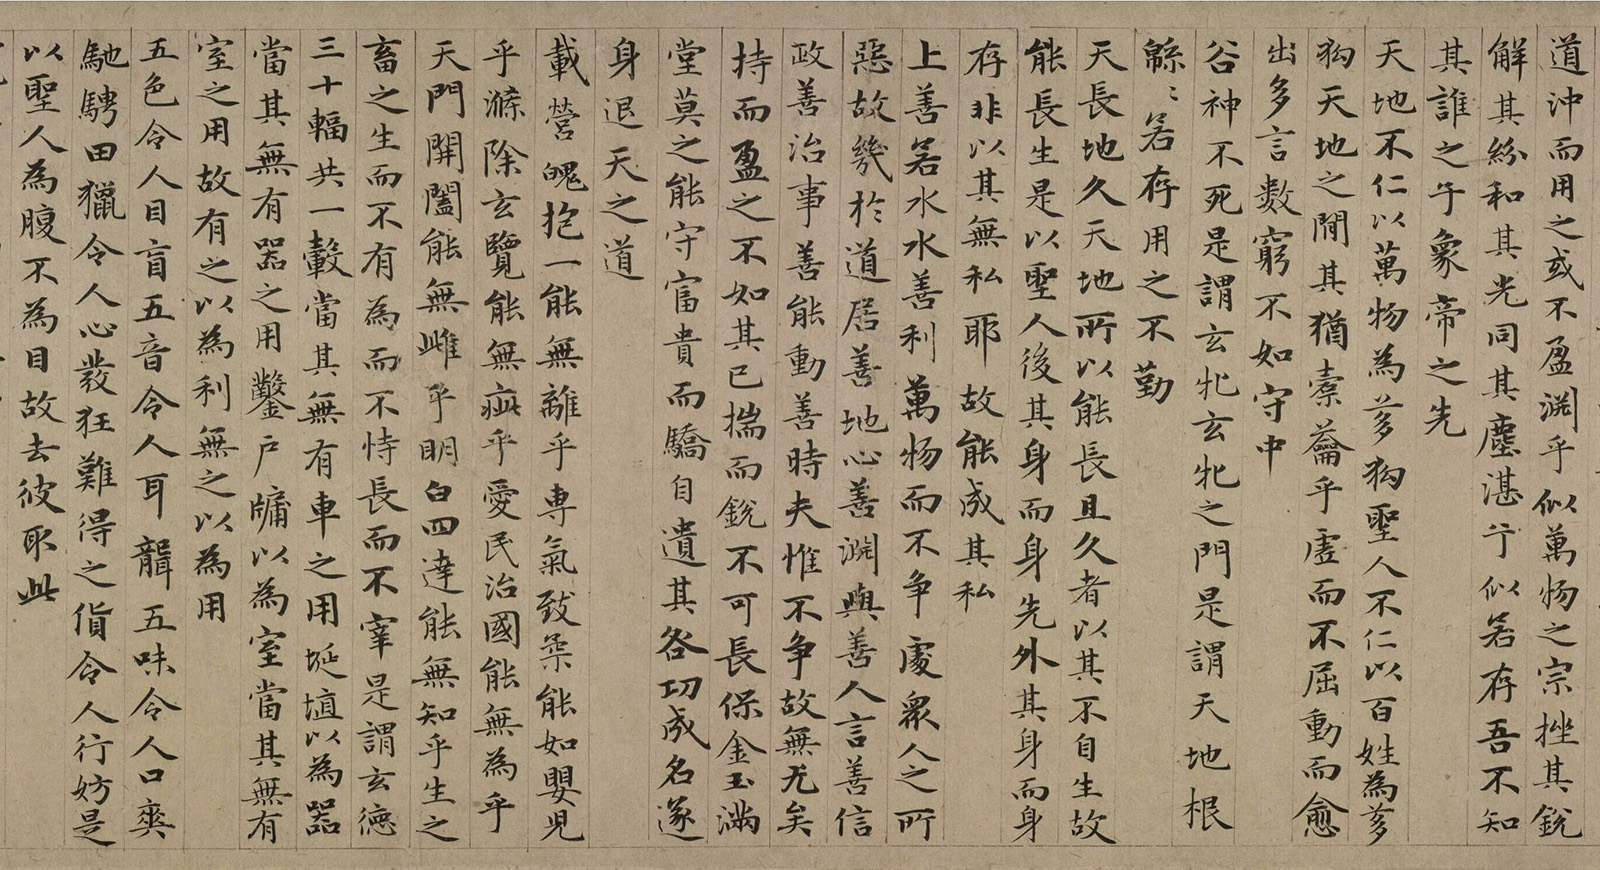 道沖而用之或不盈淵乎似萬物之宗挫其銳
解其紛和其光同其塵湛兮似若存吾不知
其誰之子象帝之先
天地不仁以萬物為芻狗聖人不仁以百姓為芻
狗天地之間其猶橐籥乎虛而不屈動而愈
出多言數窮不如守中
谷神不死是謂玄牝玄牝之門是謂天地根
綿〻若存用之不勤
天長地久天地所以能長且久者以其不自生故
能長生是以聖人後其身而身先外其身而身
存非以其無私耶故能成其私
上善若水水善利萬物而不爭處眾人之所
惡故幾於道居善地心善淵與善人言善信
政善治事善能動善時夫惟不爭故無尤矣
持而盈之不如其已揣而銳不可長保金玉滿
堂莫之能守富貴而驕自遺其咎功成名遂
身退天之道
載營魄抱一能無離乎專氣致柔能如嬰兒
乎滌除玄覽能無疵乎愛民治國能無為乎
天門開闔能無雌乎明白四達能無知乎生之
畜之生而不有為而不恃長而不宰是謂玄德
三十輻共一轂當其無有車之用埏埴以為器
當其無有器之用鑿戶牖以為室當其無有
室之用故有之以為利無之以為用
五色令人目盲五音令人耳聾五味令人口爽
馳騁田獵令人心發狂難得之貨令人行妨是
以聖人為腹不為目故去彼取此